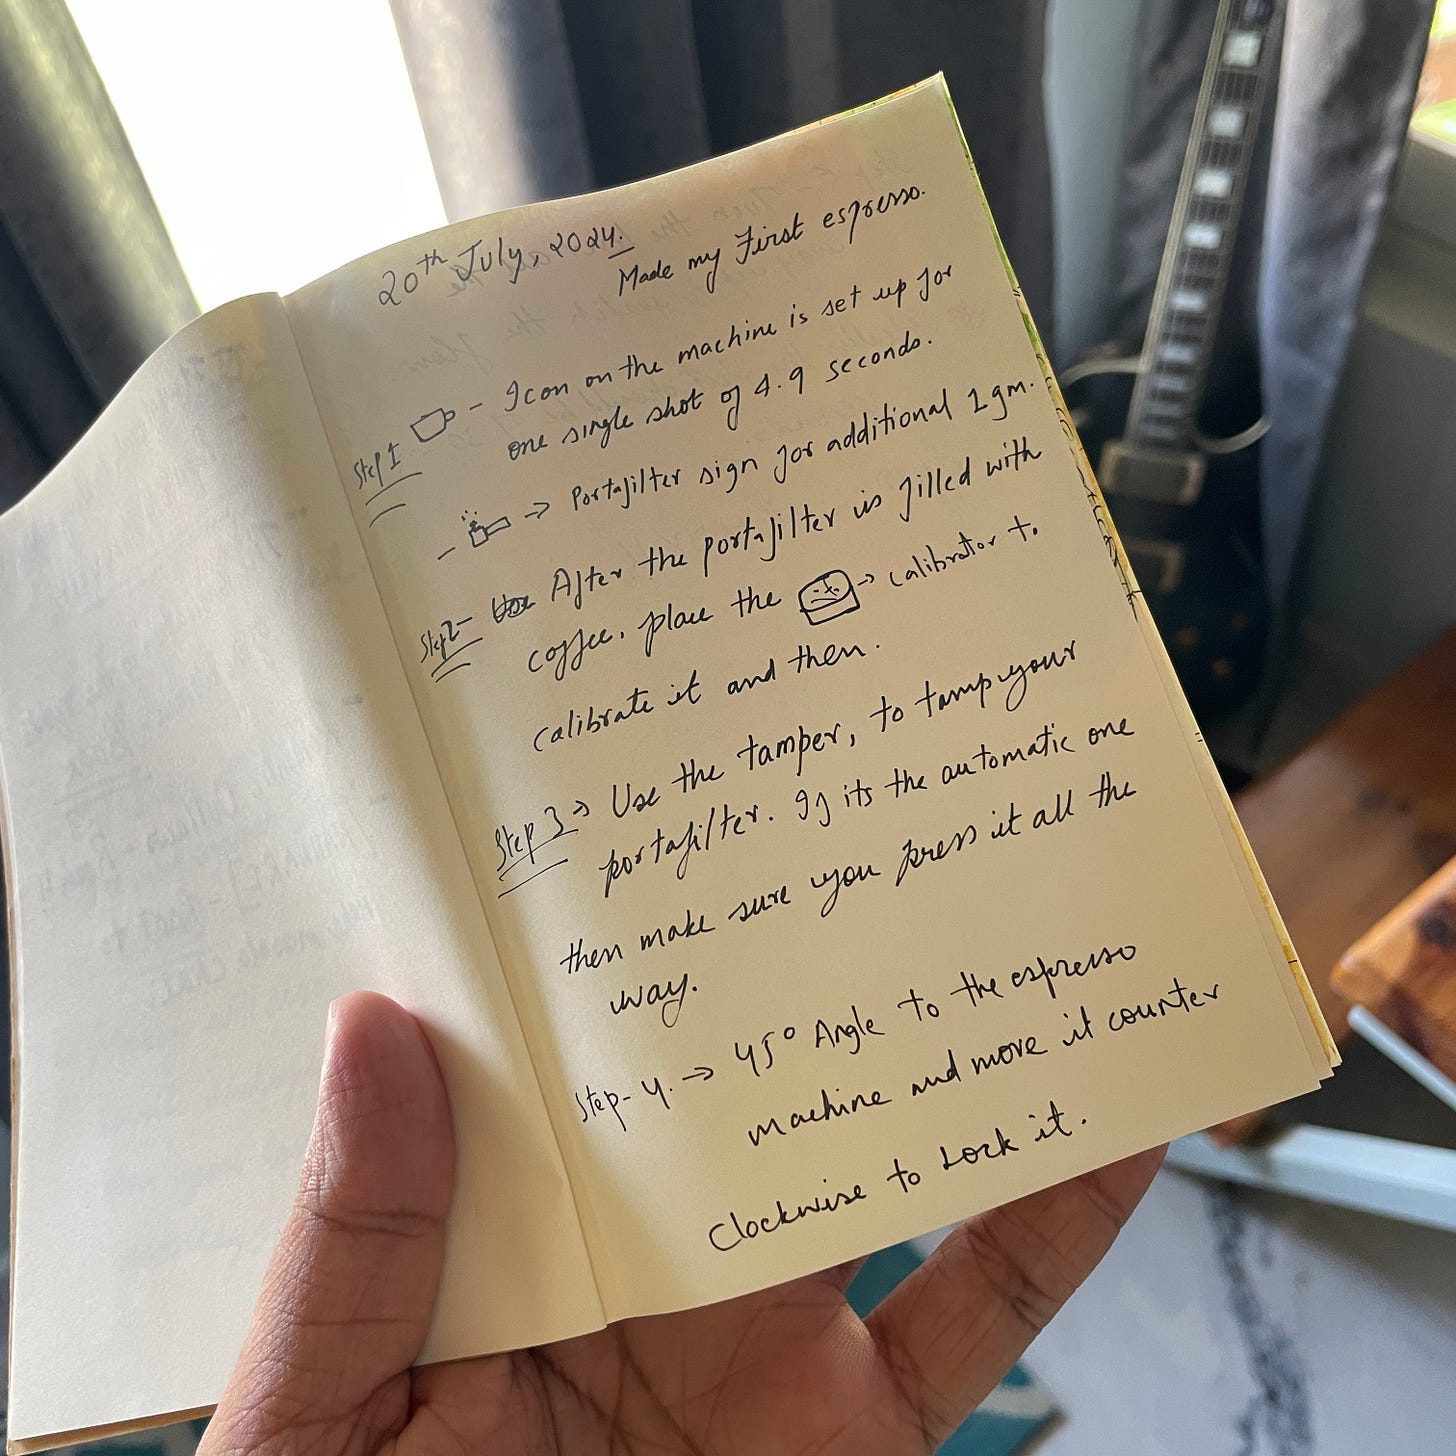 20th July, 2024.
Made my First espresso.
Step 1 - Icon on the machine is set up for
one single shot of 4.9 seconds.
- → Portafilter sign for additional 1gm.
Step 2- After the portafilter is filled with
coffee, place the → calibrator to
calibrate it and then.
Step 3 → Use the tamper, to tamp your
portafilter. If its the automatic one
then make sure you press it all the
way.
Step- 4. → 45° Angle to the espresso
machine and move it counter
Clockwise to Lock it.